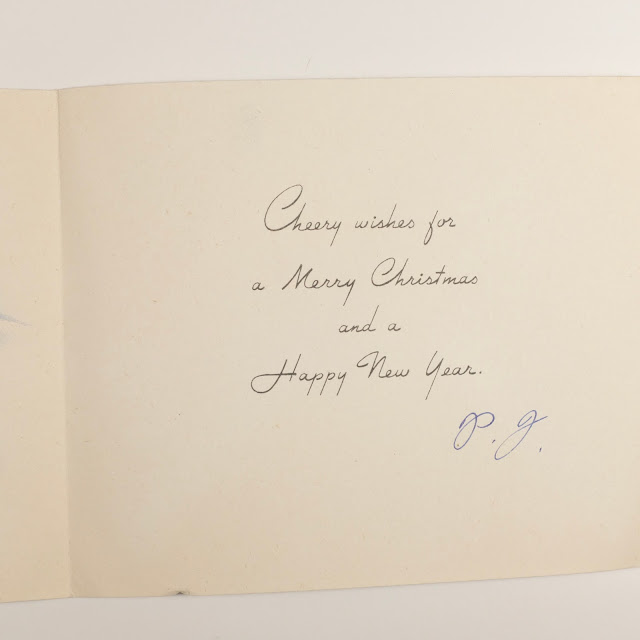 Cheery wishes for
a Merry Christmas
and a
Happy New Year.
P. J.